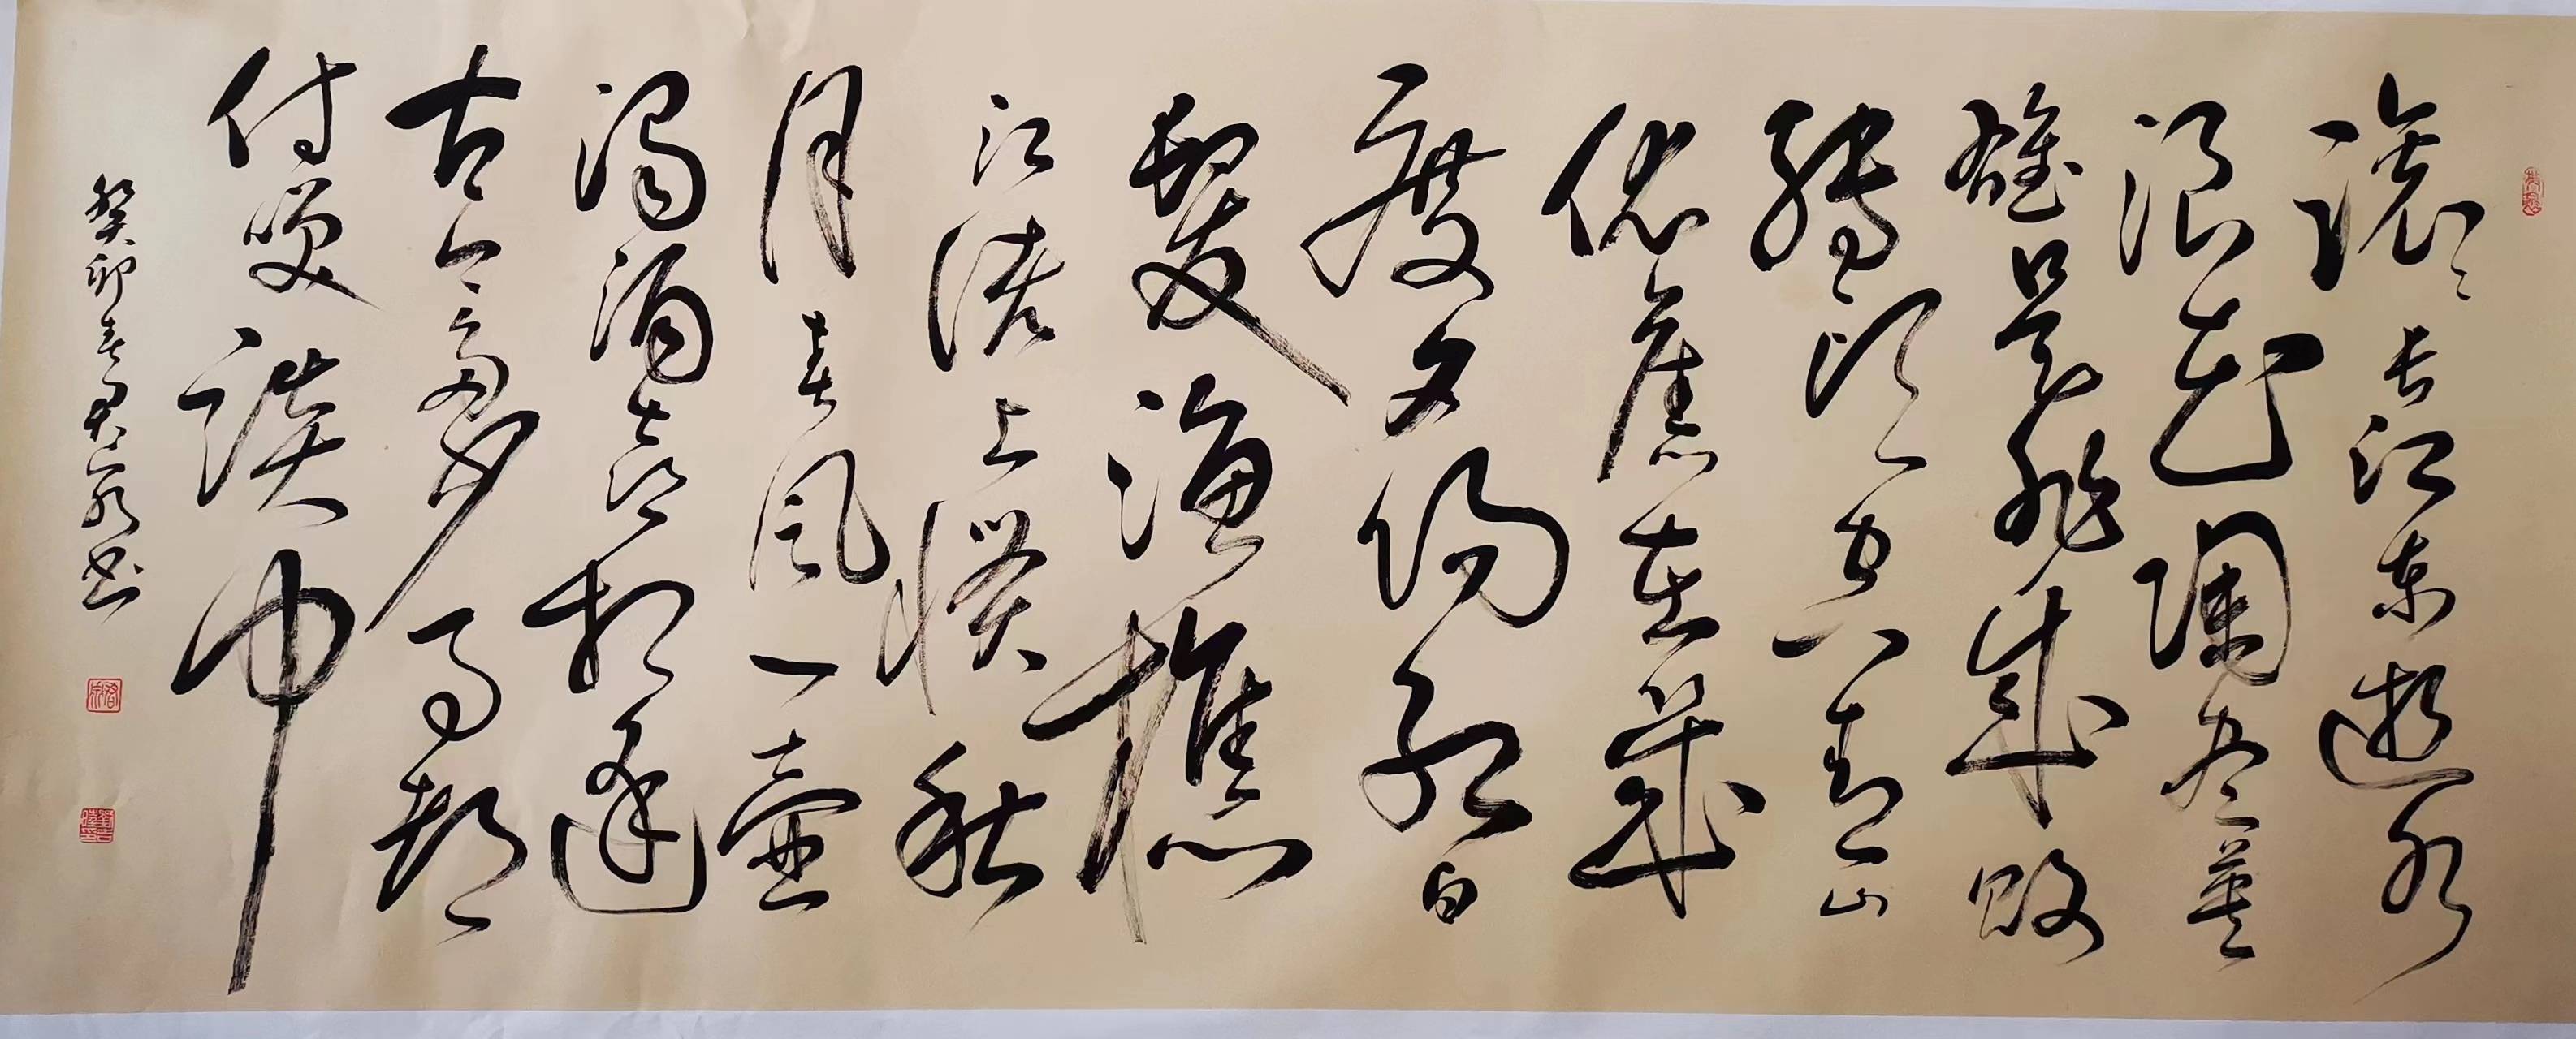 滚滚长江东逝水
浪花淘尽英
雄是非成败
转头空青山
依旧在几
度夕阳红白
髮渔樵
江渚上惯秋
月春风一壶
浊酒喜相逢
古今多少事都
付笑谈中
癸卯春君书